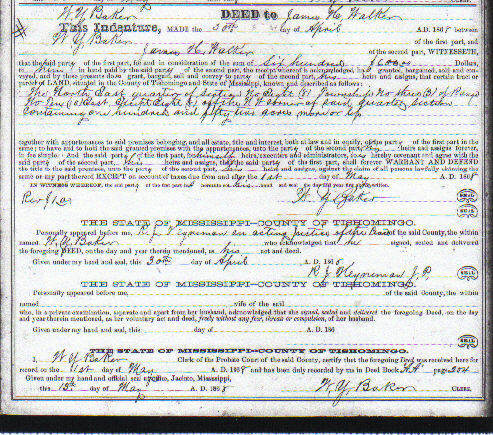 W. Y. Baker DEED to James H. Walker
This Indenture, MADE the 30th day of April A. D. 1868 between
W. Y. Baker of the first part, and
James H. Walker of the second part, WITNESSETH,
that the said party of the first part, for and in consideration of the sum of Six hundred Dollars,
to him in hand paid by the said party of the second part, the receipt whereof is acknowledged, has granted, bargained, sold and con-
veyed, and by these presents does grant, bargain, sell and convey to the party of the second part, heirs and assigns, that certain tract or
parcel of LAND situated in the County of Tishomingo and State of Mississippi, known and described as follows:
The North East quarter of section Eight (8) Township No three (3) of Range
No Ten (10) East of the N W corner of said quarter section
Containing one hundred and fifty acres more or less
together with appurtenances to said premises belonging, and all estate, title and interest, both at law and in equity, of the party of the first part in the
same; to have and to hold the said granted premises with the appurtenances to the party of the second part, his heirs and assigns forever,
in fee simple: And the said party of the first part, heirs, executors and administrators, hereby covenant and agree with the
said party of the second part, his heirs and assigns, that the said party of the first part, shall forever WARRANT AND DEFEND
the title to the said premises, unto the party of the second part, his heirs and assigns, against the claims of all persons lawfully claiming the
same or any part thereof EXCEPT on account of taxes due from and after the 1st day of May A. D. 186
IN WITNESS WHEREOF, the said party of the first part has hereunto set his hand and seal the day and year first above written.
W. Y. Baker SEAL
Rev $1.00
SEAL
THE STATE OF MISSISSIPPI-COUNTY OF TISHOMINGO.
Personally appeared before me, R. J. an acting Justice of the Peace of the said County, the within
named W. Y. Baker who acknowledged that he signed, sealed and delivered
the foregoing DEED, on the day and year therein mentioned, as his act and deed.
Given under my hand and seal, this 30th day of April A. D. 1868
R. J. J. P. SEAL
THE STATE OF MISSISSIPPI-COUNTY OF TISHOMINGO.
Personally appeared before me, of the said County, the within
named wife of the said
who, in a private examination, separate and apart from her husband, acknowledged that she signed, sealed and delivered the foregoing Deed, on the day
and year therein mentioned, as her voluntary act and deed, freely without any fear, threats or compulsion, of her husband.
Given under my hand and seal, this day of A. D. 186 SEAL
THE STATE OF MISSISSIPPI-COUNTY OF TISHOMINGO.
I, W. Y. Baker Clerk of the Probate Court of the said County, certify that the foregoing Deed was received here for
record on the 1st day of May 1868 and has been duly recorded by me in Deed Book page 204
Given under my hand and official seal of office, Jacinto, Mississippi,
this 13th day of May A. D. 1868 W. Y. Baker CLERK.